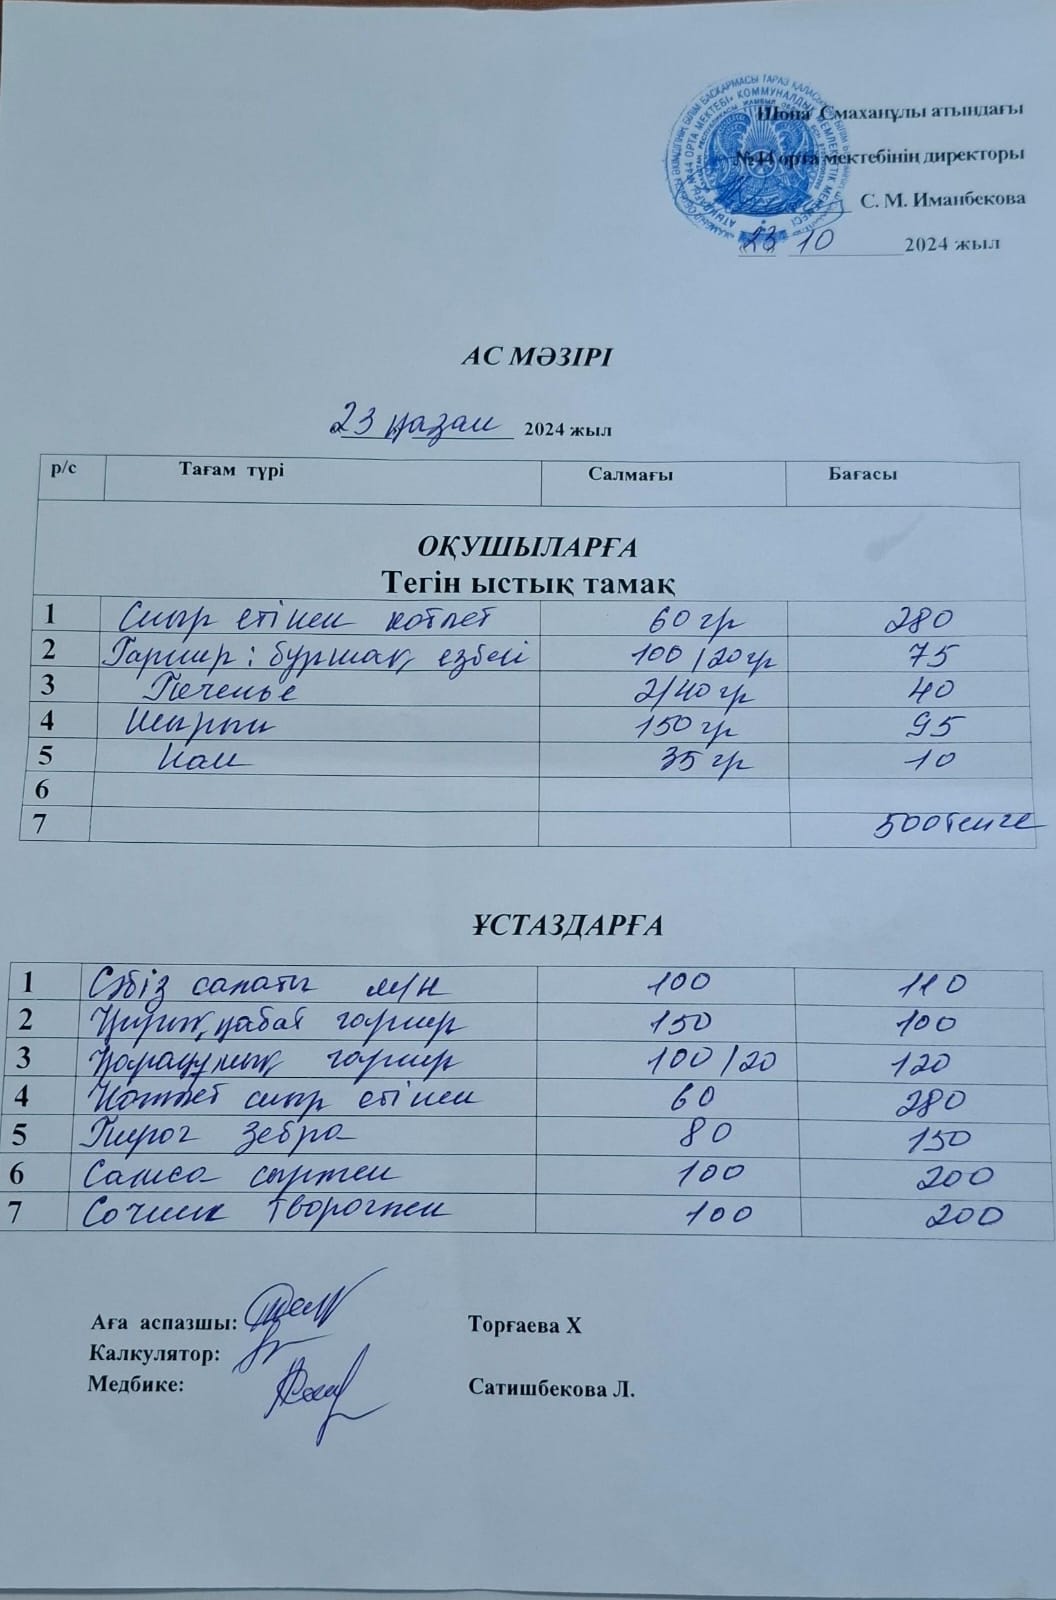 Шона Смаханұлы атындағы
№44 орта мектебінің директоры
С. М. Иманбекова
23 10 2024 жыл
АС МӘЗІРІ
23 қазан 2024 жыл
р/с Тағам түрі Салмағы Бағасы
ОҚУШЫЛАРҒА
Тегін ыстық тамақ
1 Сиыр етінен котлет 60 гр 280
2 Гарнир: бұршақ езбесі 100/20гр 75
3 Печенье 2/40 гр 40
4 Шырын 150 гр 95
5 Нан 35 гр 10
6
7 500теңге
ҰСТАЗДАРҒА
1 Сәбіз салаты м/н 100 110
2 Қырыққабат гарнир 150 100
3 Қарақұмық гарнир 100/20 120
4 Котлет сиыр етінен 60 280
5 Пирог зебра 80 150
6 Самса сырмен 100 200
7 Сочник творогпен 100 200
Аға аспазшы: Торғаева Х
Калкулятор:
Медбике: Сатишбекова Л.